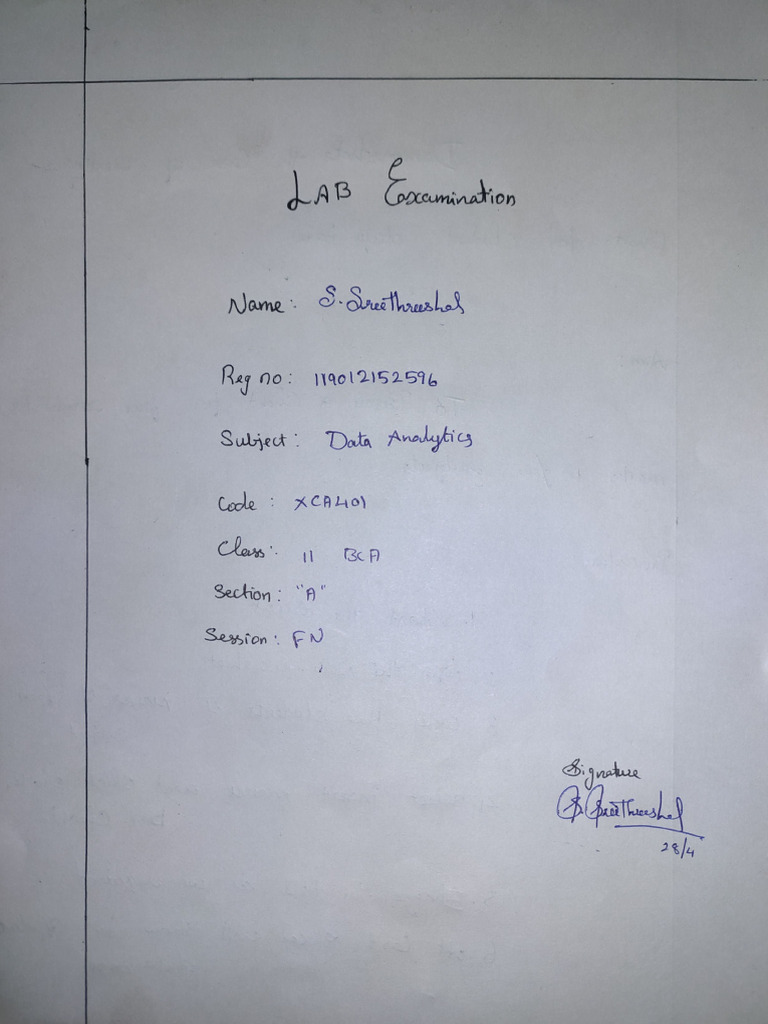 LAB Examination
Name: S. Sreethreeshal
Reg no: 119012152596
Subject: Data Analytics
Code: XCA401
Class: II BCA
Section: "A"
Session: FN
Signature
S. Sreethreeshal
28/4